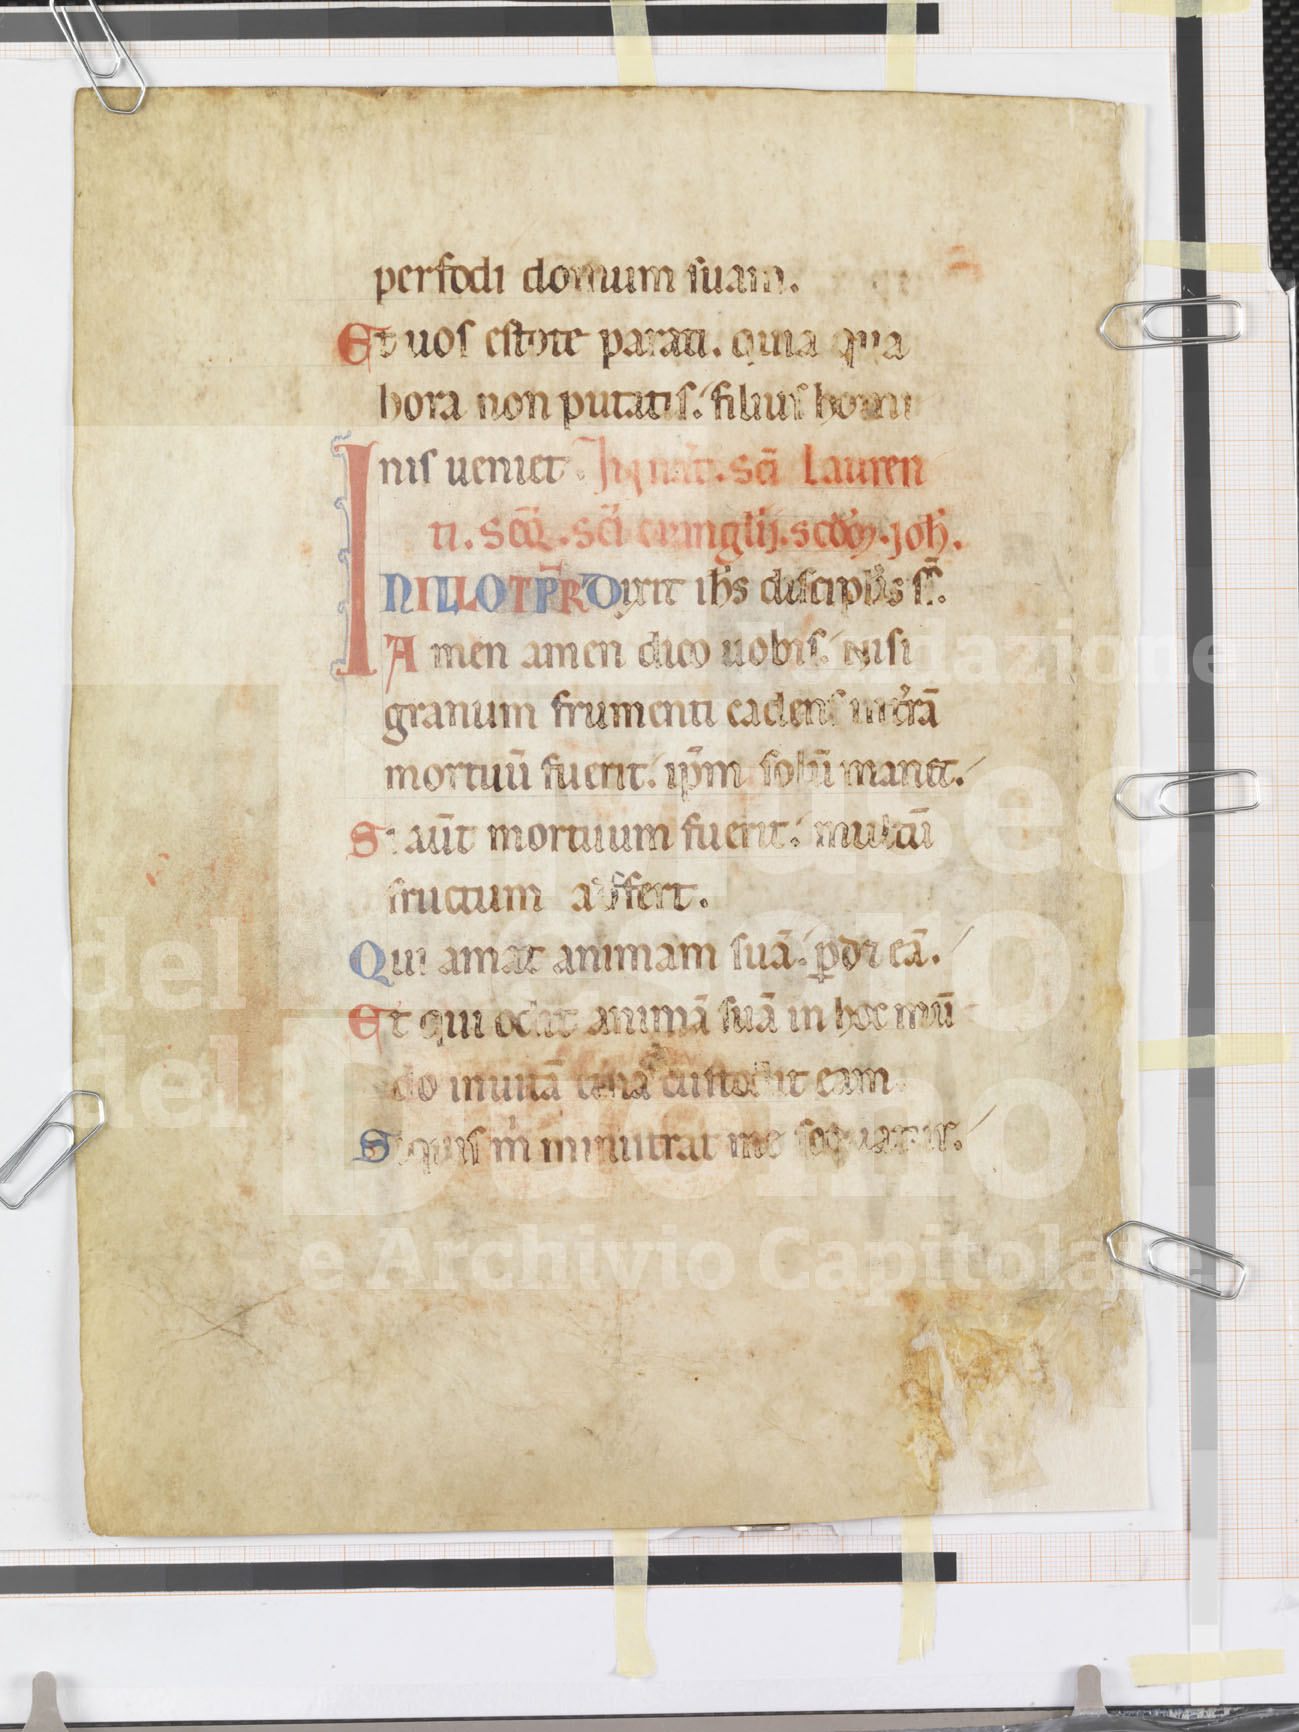 perfodi domum suam.
Et uos estote parati. quia qua
hora non putatis. filius homi
nis ueniet. In nat̄. sc̄i Lauren
ti. Seq̄. sc̄i euuanglij. scd̄m. joh̄.
IN ILLO TP̄R Dixit ih̄s discipl̄is s̄.
Amen amen dico uobis. nisi
granum frumenti cadens in t̄rā
mortuū fuerit. ip̄m solū manet.
Si aūt mortuum fuerit. multū
fructum affert.
Qui amat animam suā. ꝑdet eā.
Et qui odit animā suā in hoc mū
do in uitā et̄nā custodit eam
Si quis m̄ ministrat me sequatur.
Fondazione
Museo
del Tesoro
del Duomo
e Archivio Capitolare